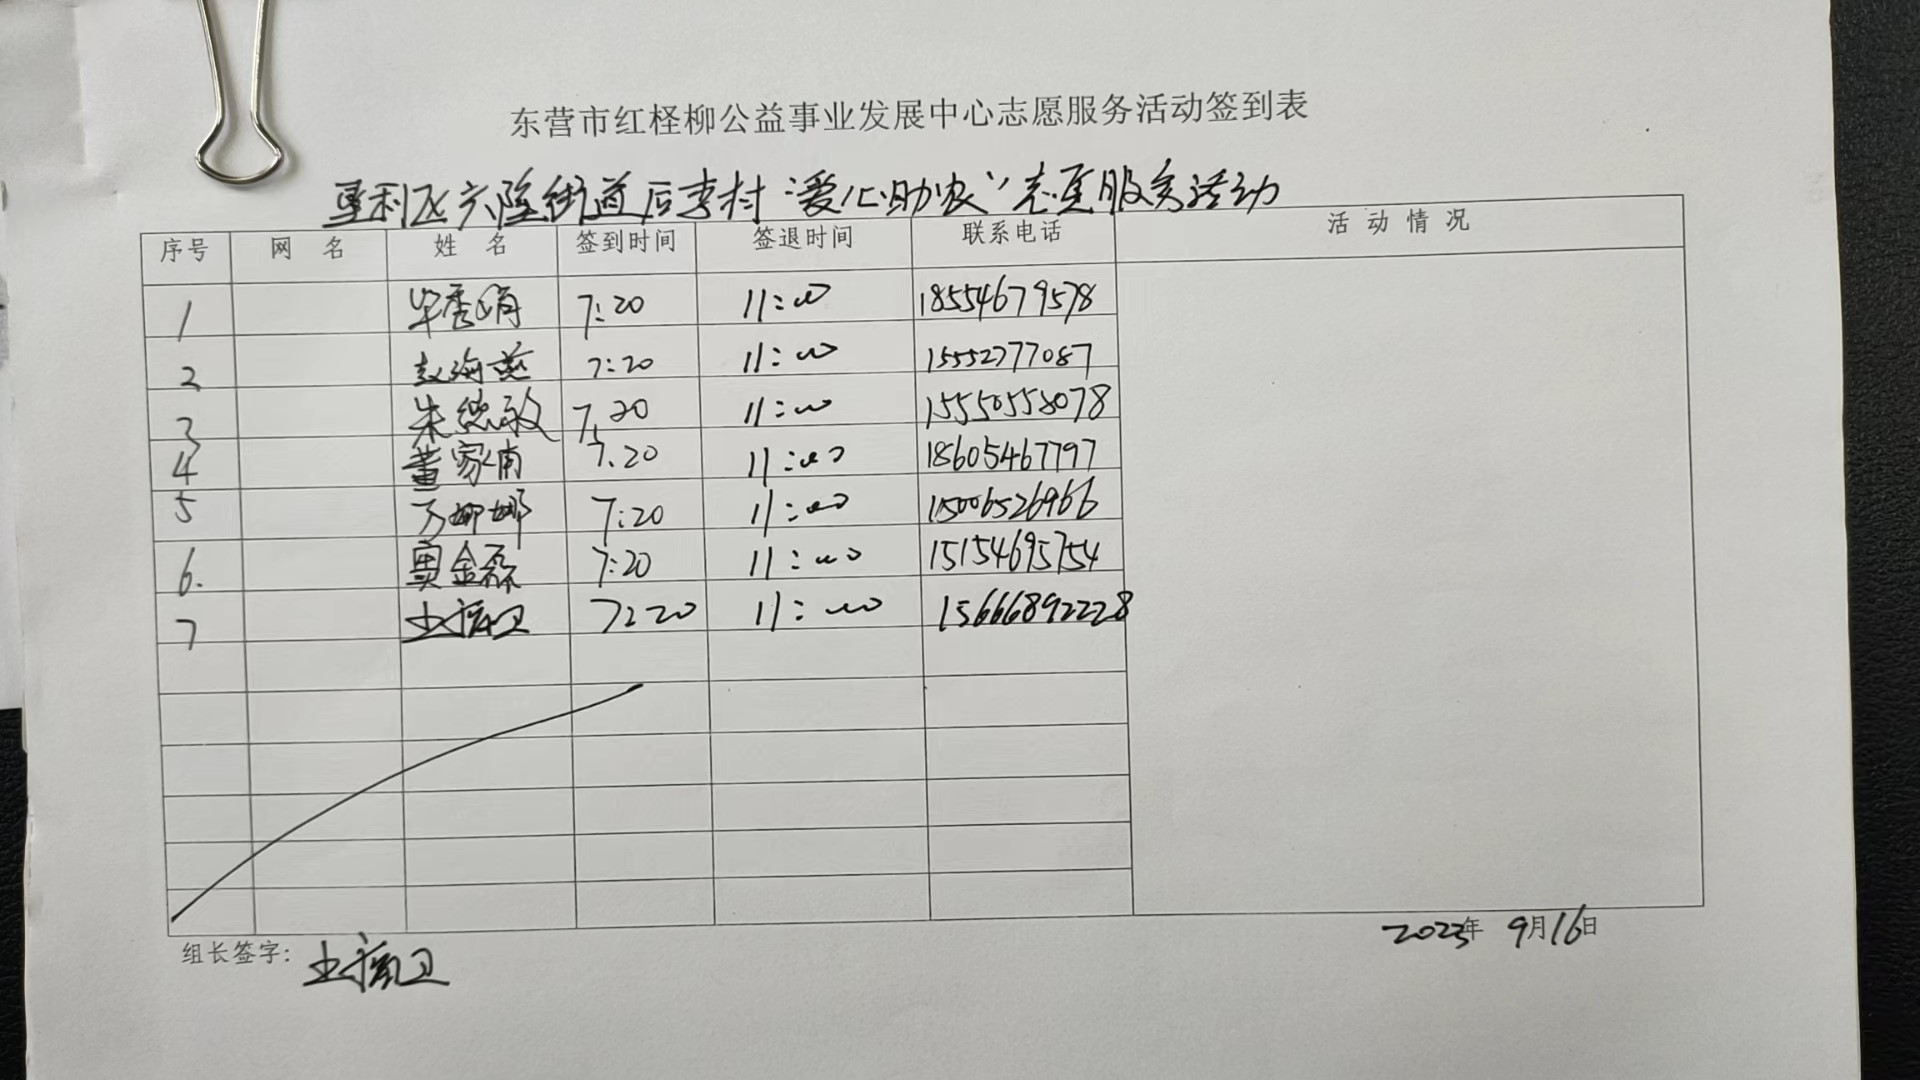 东营市红柽柳公益事业发展中心志愿服务活动签到表
垦利区六陸街道后李村“爱心助农”志愿服务活动
序号 网 名 姓 名 签到时间 签退时间 联系电话 活动情况
1 华秀娟 7:20 11:00 18554679578
2 赵海燕 7:20 11:00 15552777087
3 朱德敏 7.20 11:00 15550558078
4 董家倩 7.20 11:00 18605467797
5 万娜娜 7:20 11:00 15006526966
6. 奥金磊 7:20 11:00 15154695754
7 7:20 11:00 15666892228
组长签字:
2023年 9月16日